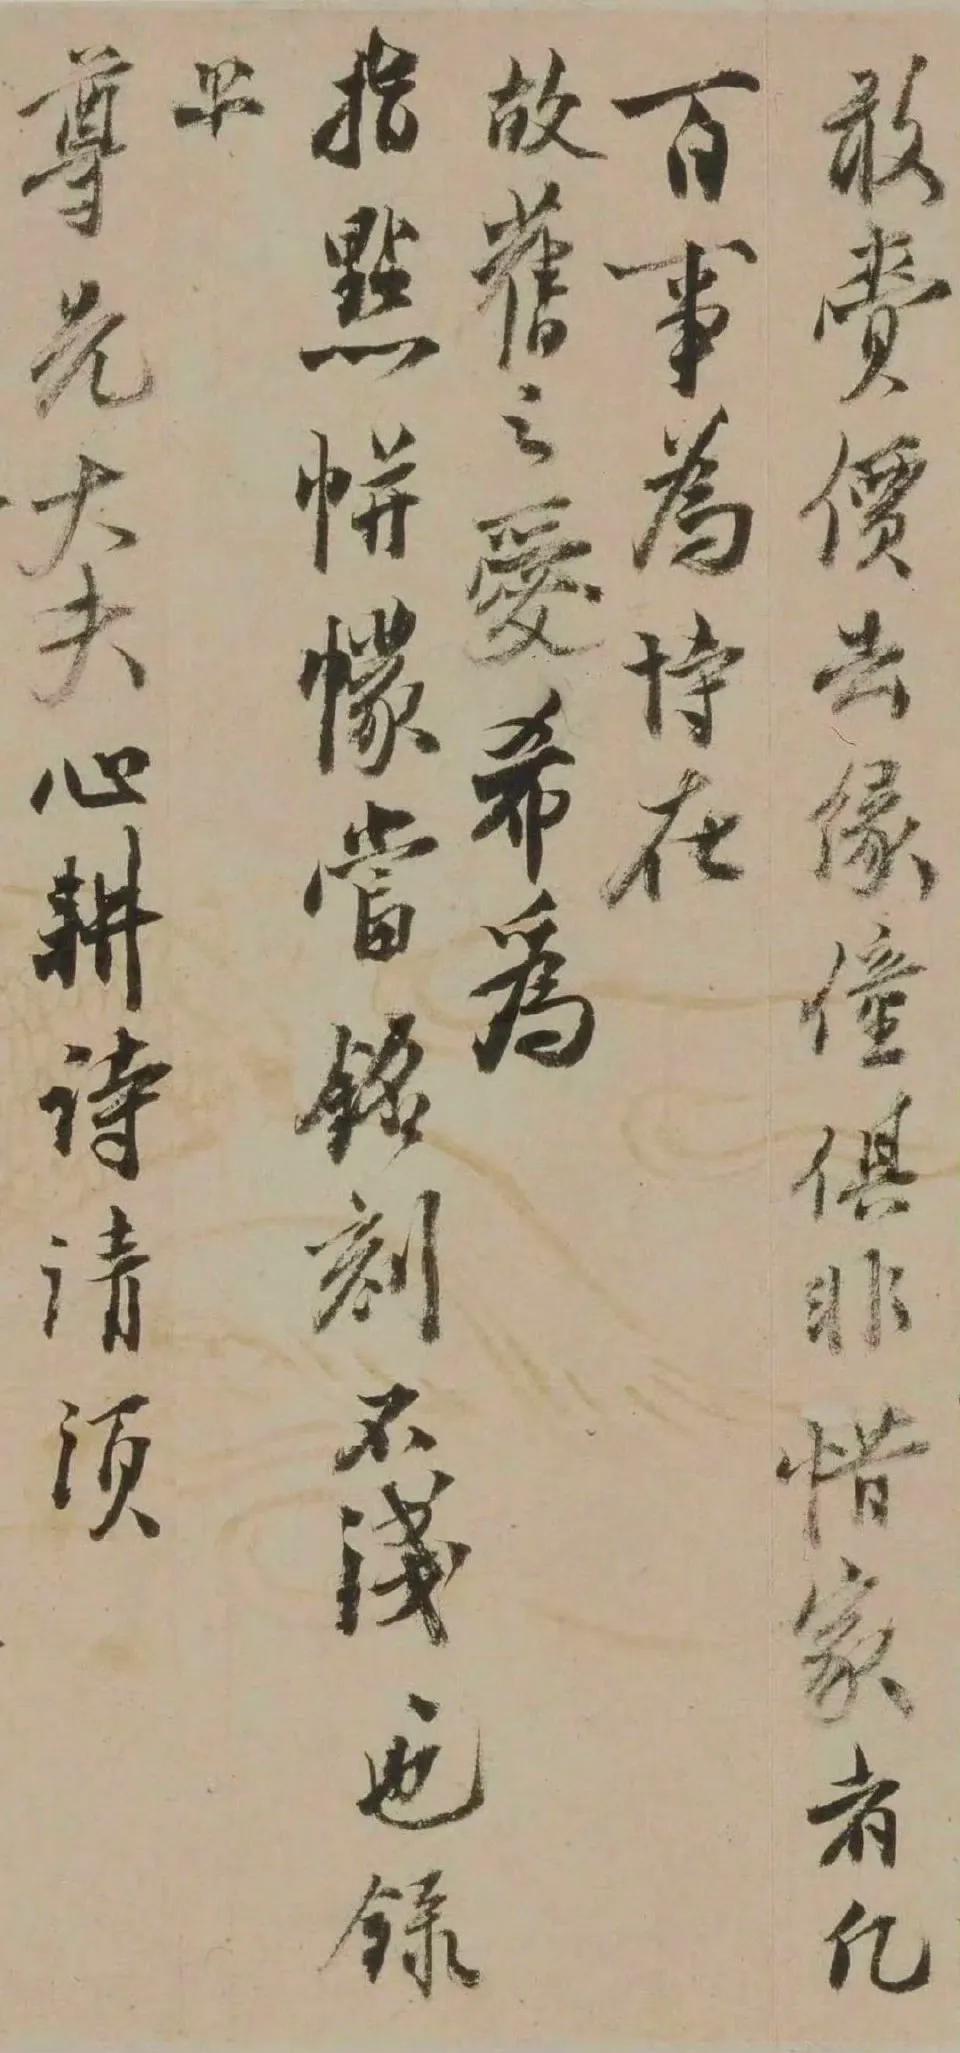 敢費價去緣僮俱非惜家者凡
百事為恃在
故舊之愛希為
指點帡幪當銘刻不淺也錄
呈
尊先大夫心耕詩請須